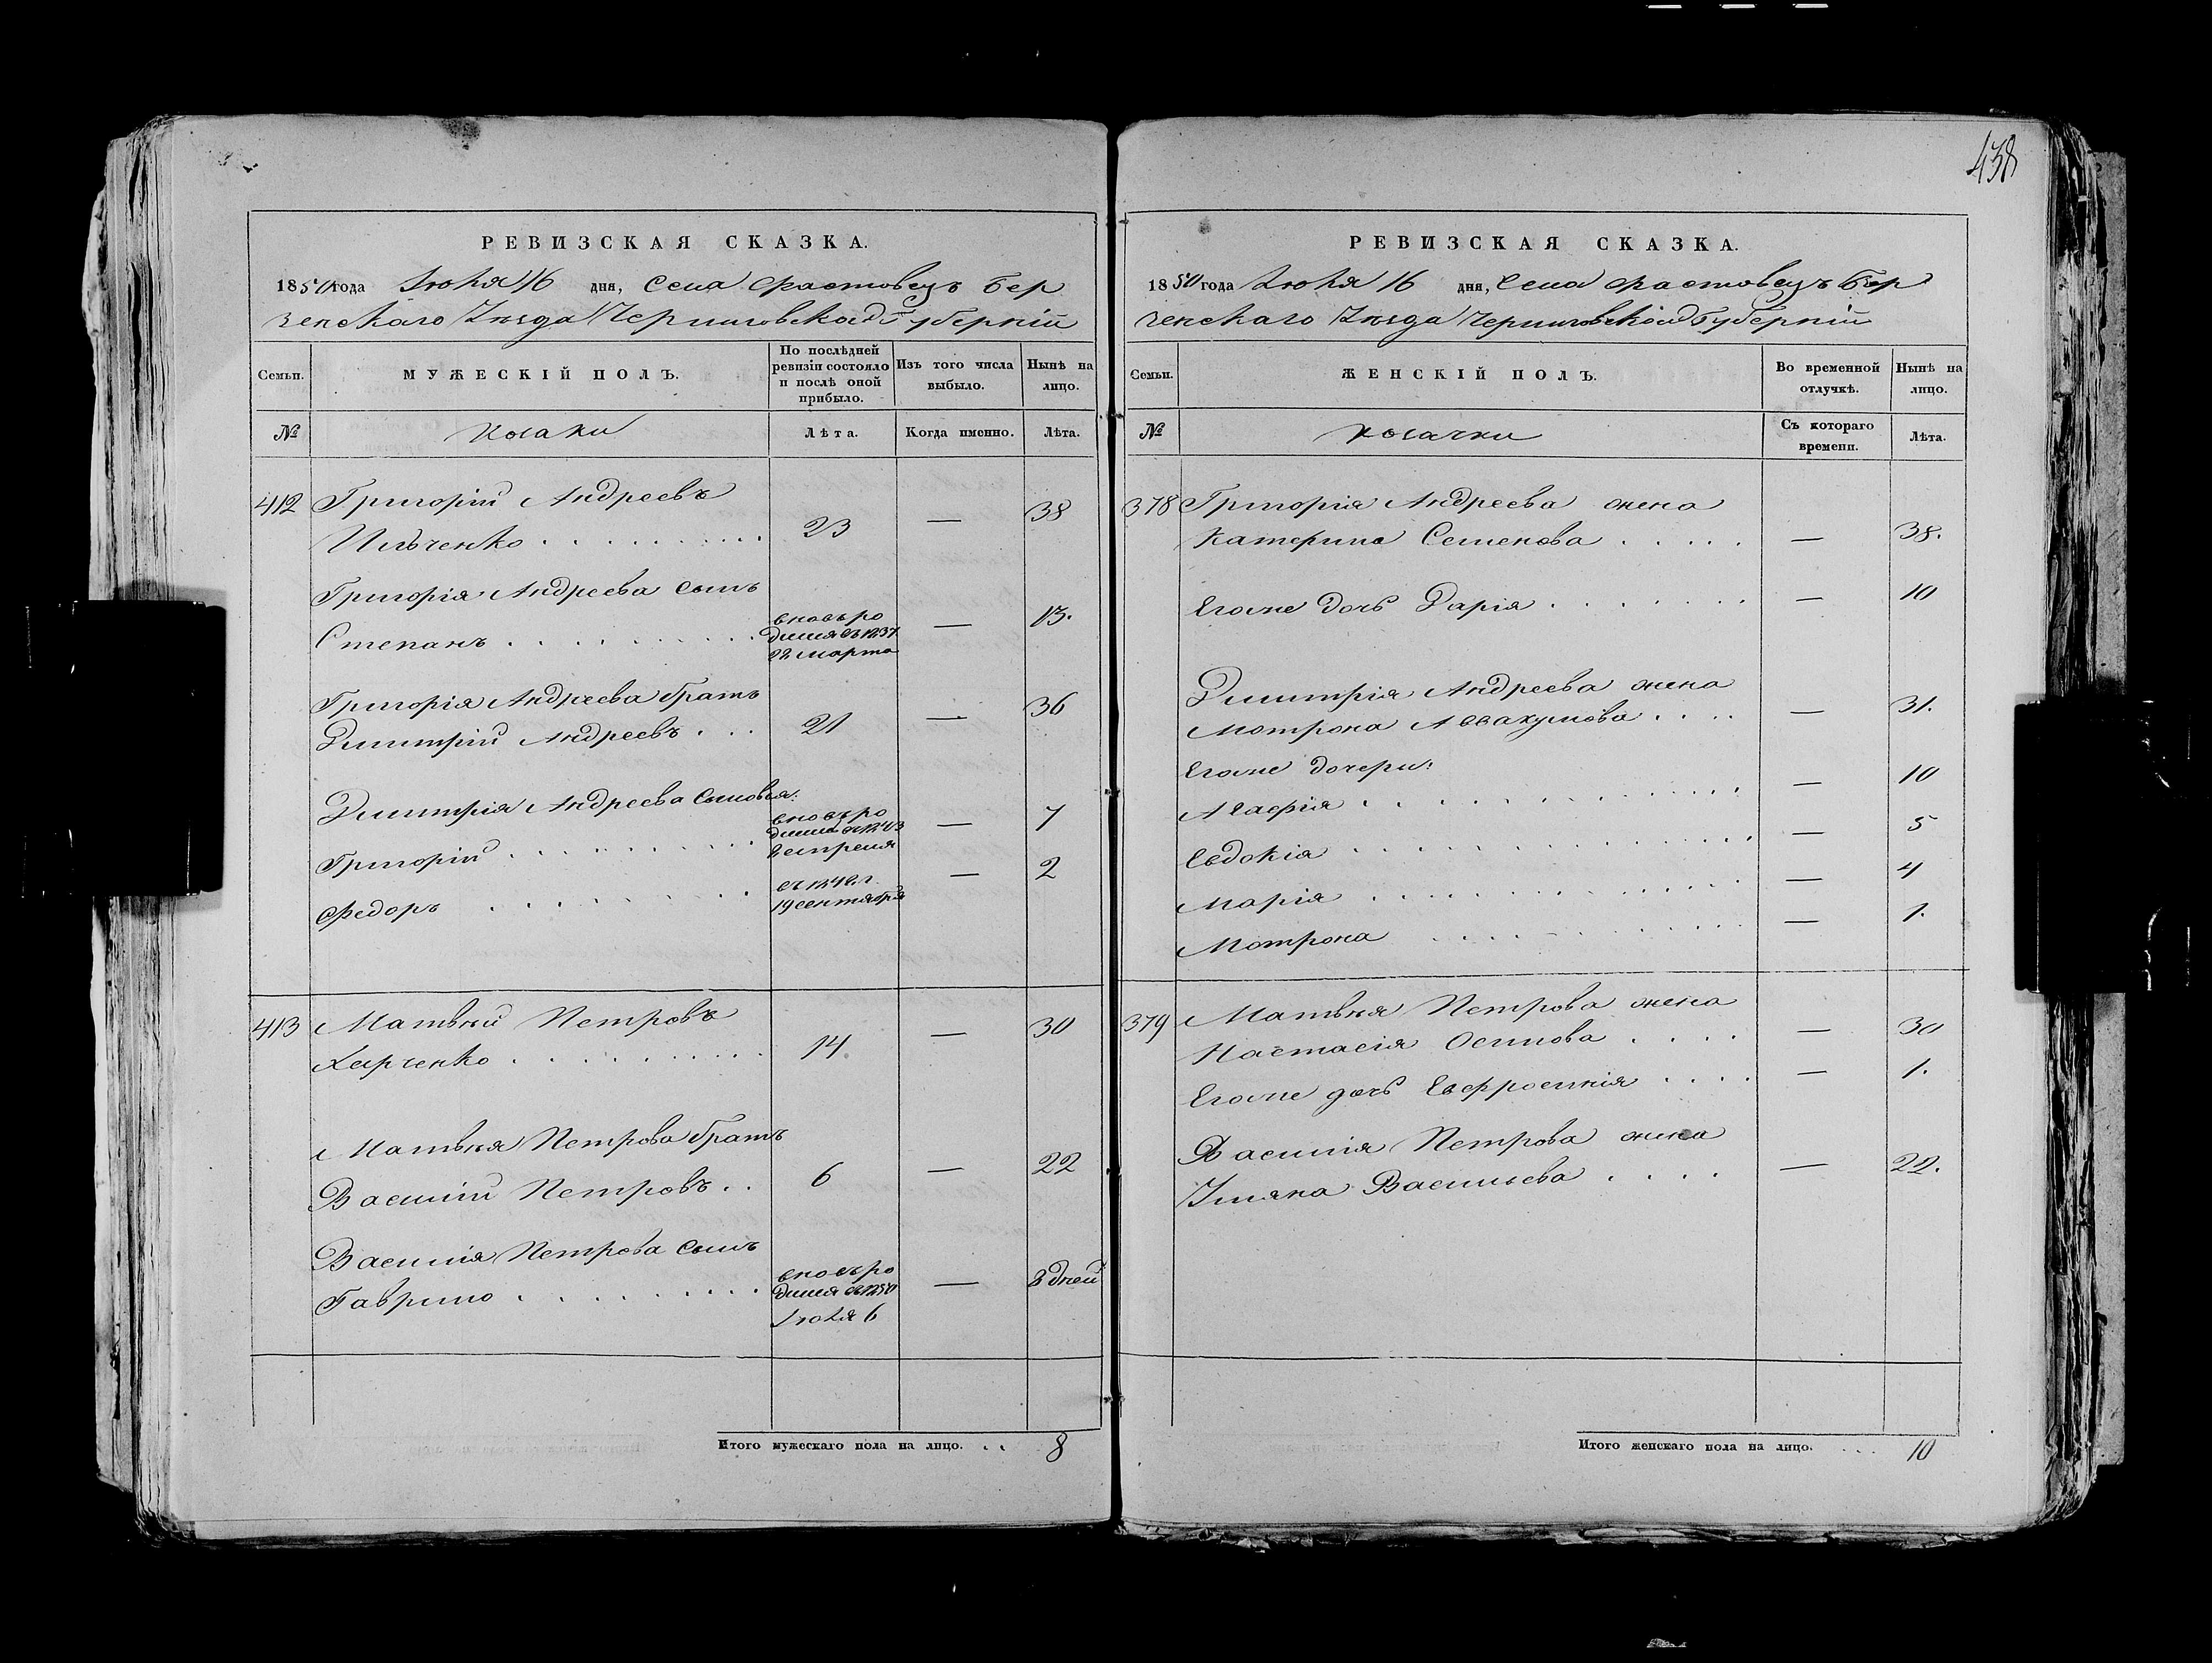 438
РЕВИЗСКАЯ СКАЗКА.
1850 года Июля 16 дня, Села Фастовецъ Бор
зенскаго Уѣзда Черниговской Губерніи
Семьи.
МУЖЕСКІЙ ПОЛЪ.
По послѣдней ревизіи состояло и послѣ оной прибыло.
Изъ того числа выбыло.
Нынѣ на лицо.
№
Козаки
Лѣта.
Когда именно.
Лѣта.
412 Григорій Андреевъ
Ильченко . . . . . . . . . 23 — 38
Григорія Андреева сынъ
Степанъ . . . . . . . . . вновь ро
дился въ 1837
22 марта — 13.
Григорія Андреева братъ
Димитрій Андреевъ . . . 21 — 36
Димитрія Андреева сыновья:
Григорій . . . . . . . . . вновь ро
дился въ 1843
— 7
Федоръ . . . . . . . . . въ 1848 г.
19 сентября — 2
413 Матвѣй Петровъ
Харченко . . . . . . . . . 14 — 30
Матвѣя Петрова братъ
Василій Петровъ . . 6 — 22
Василія Петрова сынъ
Гаврило . . . . . . . . . вновь ро
дился въ 1850
Июля 6 — 8 дней
Итого мужескаго пола на лицо. . . 8
РЕВИЗСКАЯ СКАЗКА.
1850 года Июля 16 дня, Села Фастовецъ Бор
зенскаго Уѣзда Черниговской Губерніи
Семьи.
ЖЕНСКІЙ ПОЛЪ.
Во временной отлучкѣ.
Нынѣ на лицо.
№
Козачки
Съ котораго времени.
Лѣта.
378 Григорія Андреева жена
Катерина Семенова . . . . . — 38.
Егоже дочь Дарія . . . . . . . — 10
Димитрія Андреева жена
Мотрона Аввакумова . . . . — 31.
Егоже дочери:
Агафія . . . . . . . . . . . — 10
Евдокія . . . . . . . . . . . — 5
Марія . . . . . . . . . . . — 4
Мотрона . . . . . . . . . . — 1.
379 Матвѣя Петрова жена
Настасія Осипова . . . . — 30
Егоже дочь Евфросинія . . . . — 1.
Василія Петрова жена
Ульяна Васильева . . . . — 22.
Итого женскаго пола на лицо. . . . 10